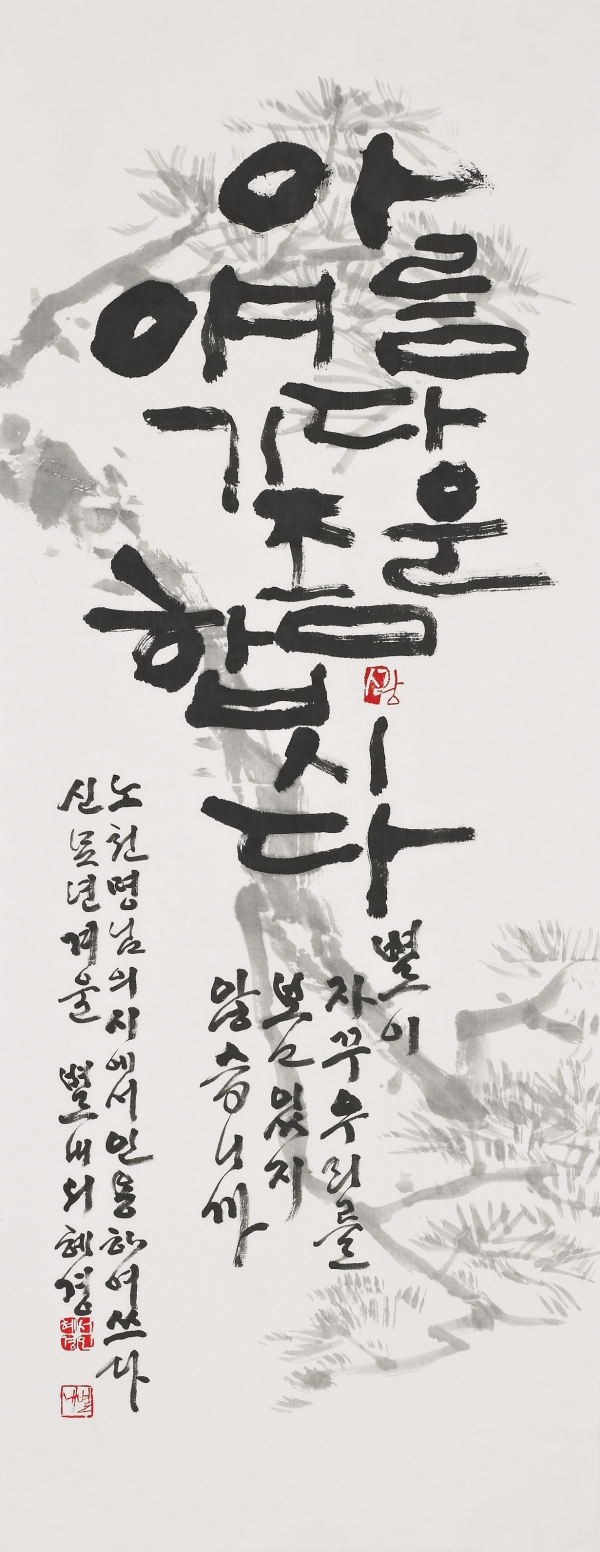 아름다운
얘기 좀
합시다
사랑
별이
자꾸 우리를
보고 있지
않습니까
노천명님의 시에서 인용하여 쓰다
신묘년 겨울 별내 혜경
별내